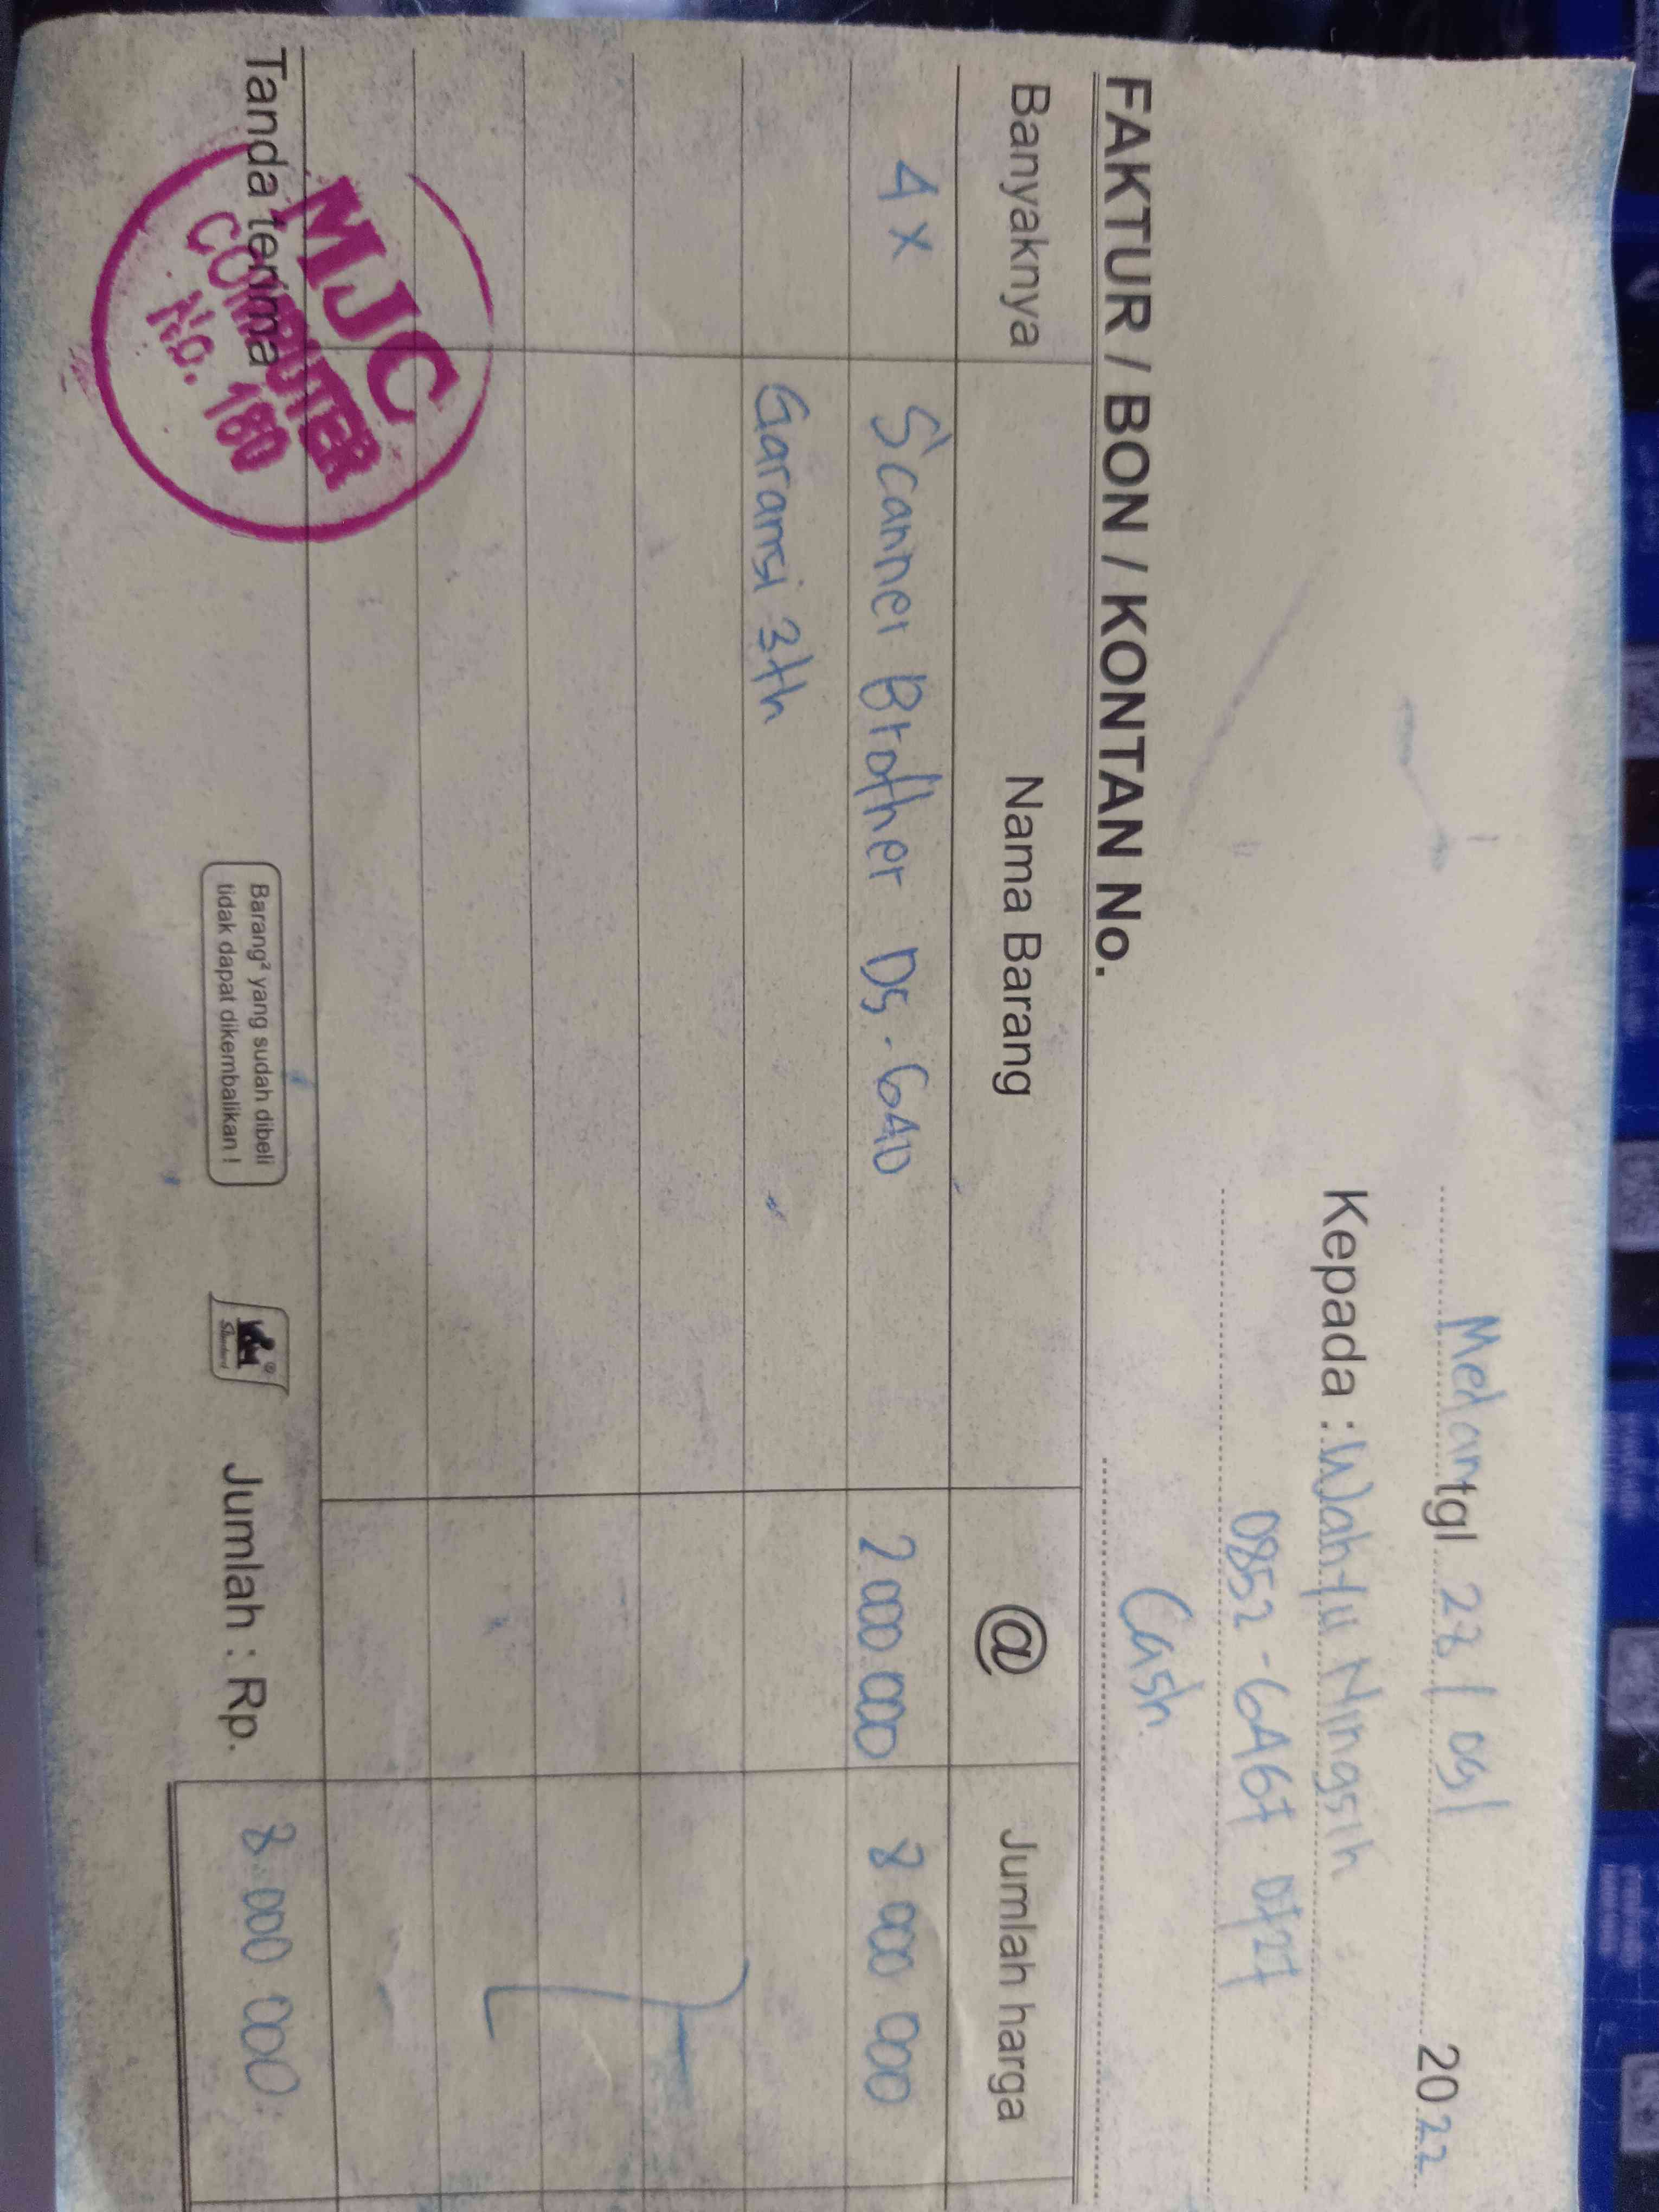 Medan tgl 28 / 09 / 2022
Kepada : Wahyu Ningsih
0852-6467 0727
Cash
FAKTUR / BON / KONTAN No.
Banyaknya Nama Barang @ Jumlah harga
4 x Scanner Brother DS-640 2 000 000 8 000 000
Garansi 3th
Tanda terima
MJC
COMPUTER
No. 180
Barang² yang sudah dibeli
tidak dapat dikembalikan !
Standard
Jumlah : Rp. 8 000 000